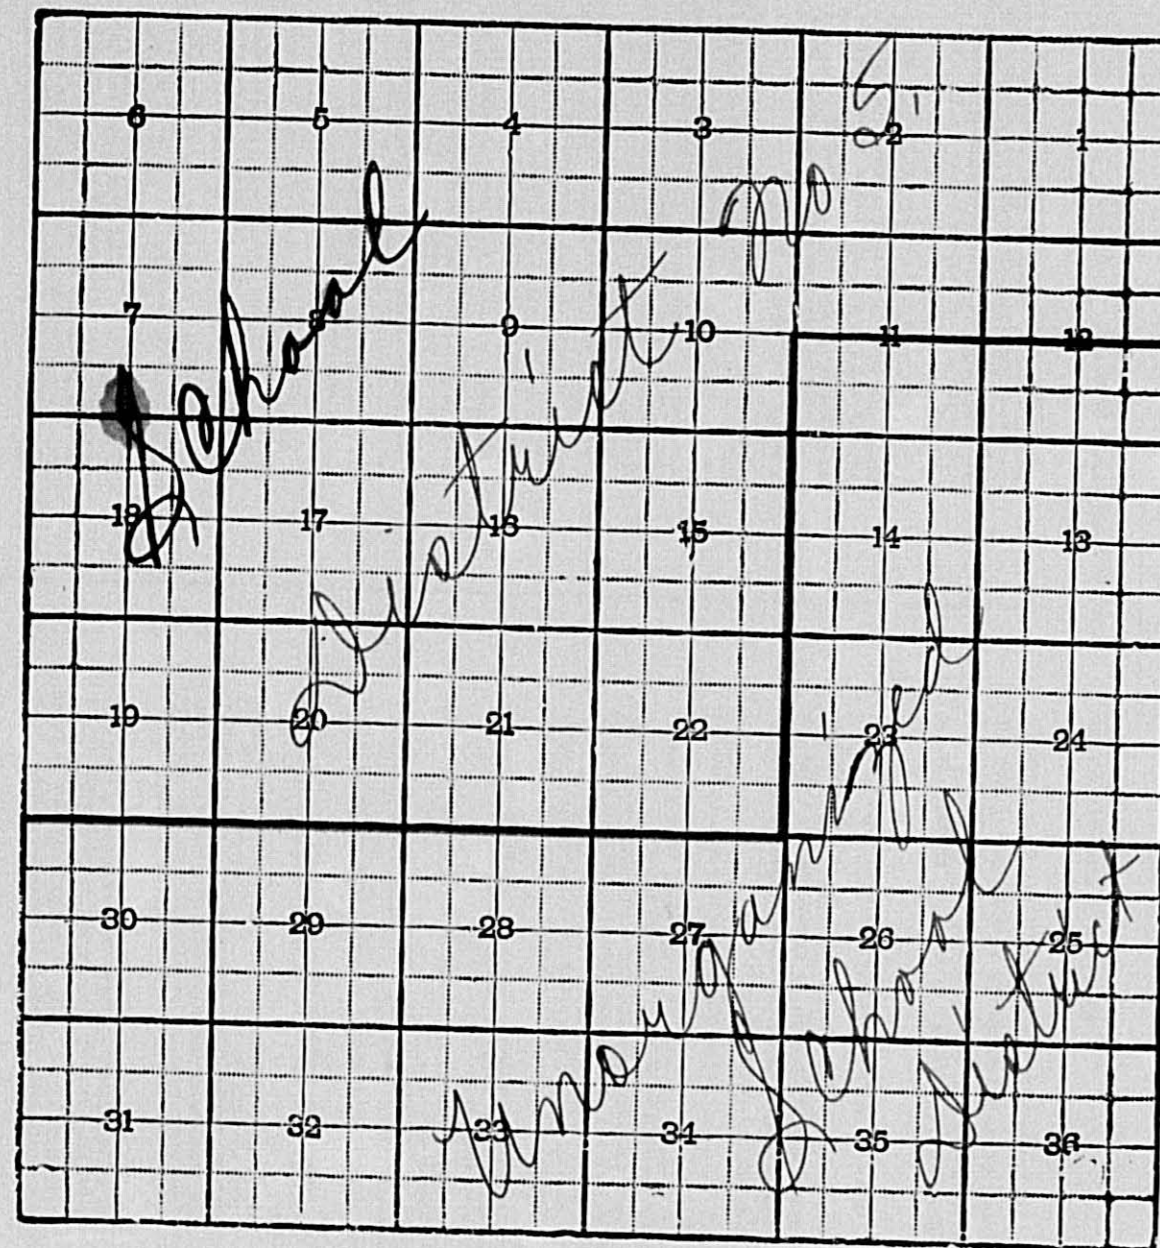 6 5 4 3 2 1
7 8 9 10 11 12
18 17 16 15 14 13
19 20 21 22 23 24
30 29 28 27 26 25
31 32 33 34 35 36
School
District No 5.
Unorganized
School
District